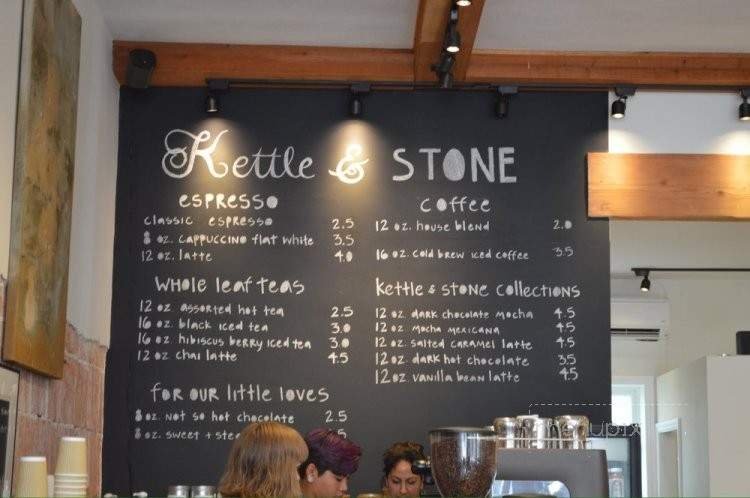 Kettle & STONE
ESPRESSO
CLASSIC ESPRESSO 2.5
8 oz. CAPPUCCINO FLAT WHITE 3.5
12 oz. LATTE 4.0
WHOLE LEAF TEAS
12 oz. ASSORTED HOT TEA 2.5
16 oz. BLACK ICED TEA 3.0
16 oz. HIBISCUS BERRY ICED TEA 3.0
12 oz. CHAI LATTE 4.5
FOR OUR LITTLE LOVES
8 oz. NOT SO HOT CHOCOLATE 2.5
8 oz. SWEET + STE
COFFEE
12 oz. HOUSE BLEND 2.0
16 oz. COLD BREW ICED COFFEE 3.5
KETTLE & STONE COLLECTIONS
12 oz. DARK CHOCOLATE MOCHA 4.5
12 oz. MOCHA MEXICANA 4.5
12 oz. SALTED CARAMEL LATTE 4.5
12 oz. DARK HOT CHOCOLATE 3.5
12 oz. VANILLA BEAN LATTE 4.5
menupix